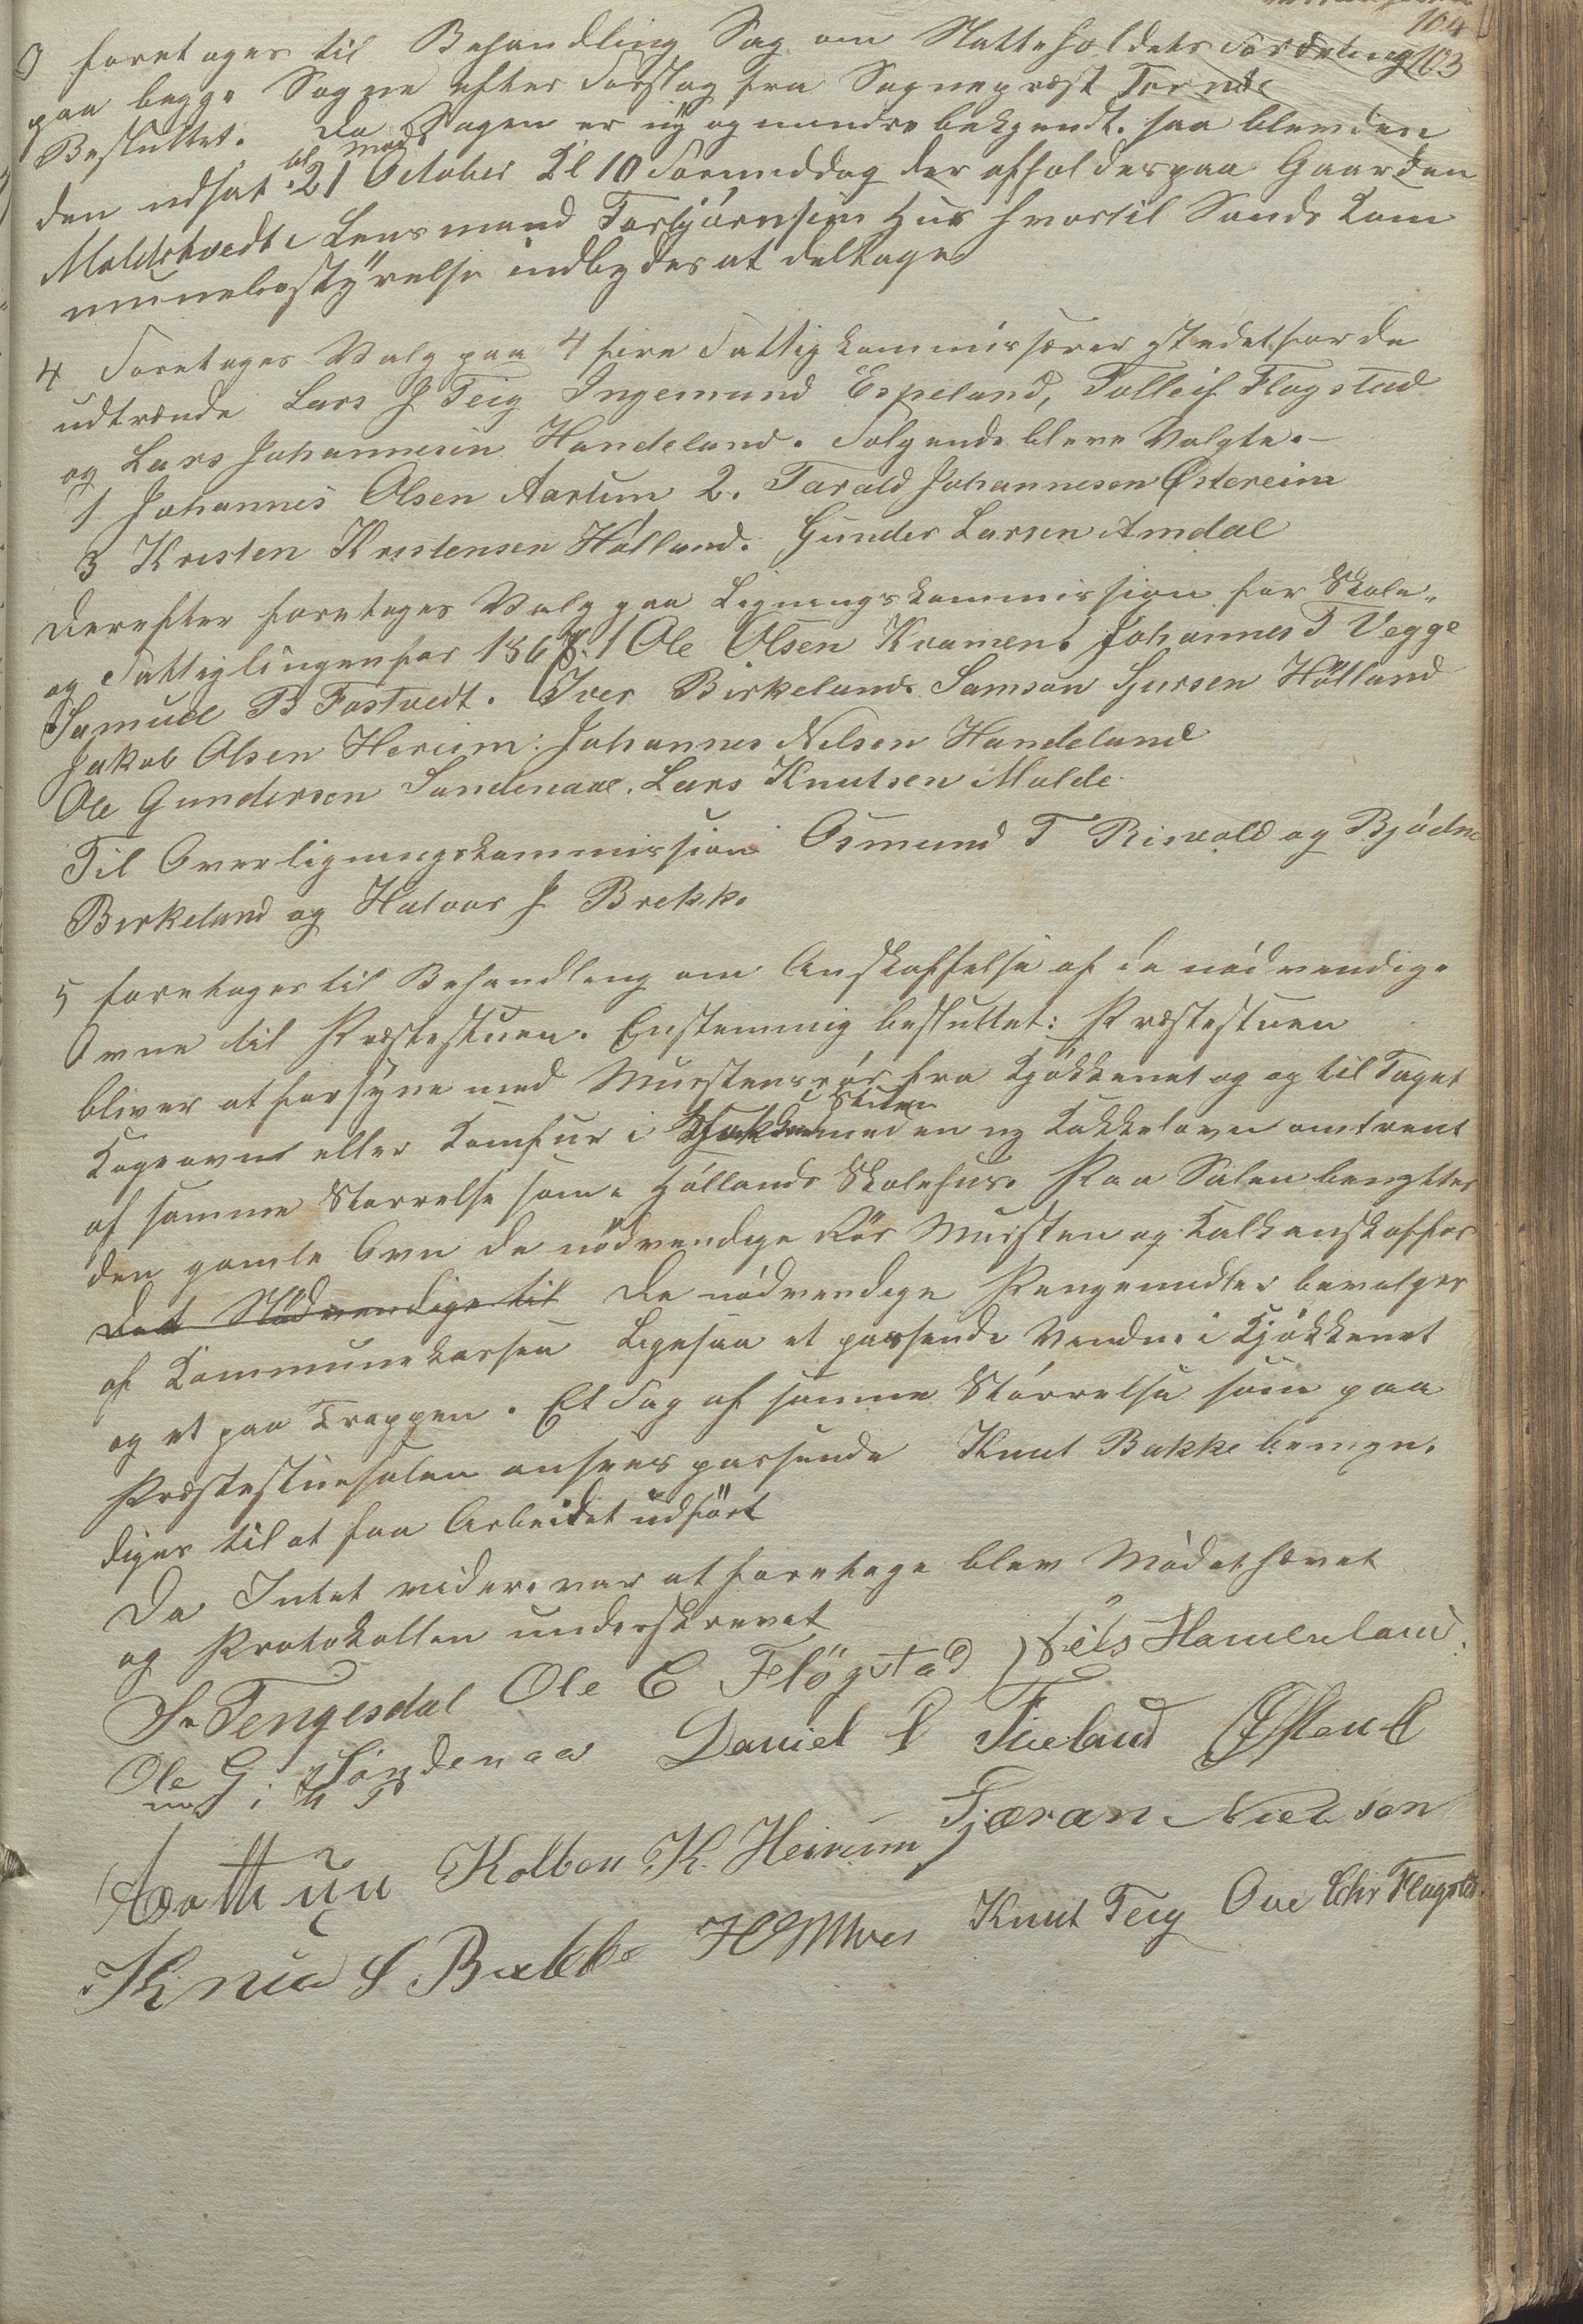 104
103
3 foretages til Behandling Sag om Skatteholdets Fordeling
paa begge Sogne efter Forslag fra Sogneprest
Besluttet. Da Sagen er ny og mindre bekjendt. saa blev den
den udsat til Møde
21 October Kl 10 Formiddag der afholdes paa Gaarden
Moldetvedt i Lensmand Torbjørnsens Huus hvortil Sands Kom
munebestyrelse indbydes at deltage
4 Foretages Valg paa 4 fire Fattigkommissærer istedetfor de
udtrædende Lars J Teig Ingemund Espeland, Tolleif Flogstad
og Lars Johannesen Handeland. Følgende bleve Valgte.-
1 Johannes Olsen Aartun 2. Tarald Johannesen Østereim
3 Kristen Kristensen Hølland. Gunder Larsen Amdal
Derefter foretages Valg paa Ligningskommission for Skole-
og Fattigligningen for 1867. 1 Ole Olsen Kvamen. Johannes T Vegge
Samuel B Fostvedt. Iver Birkeland. Samson Gursen Hølland
Jakob Olsen Herim. Johannes Nilsen Handeland
Ole Gundersen Søndenaae. Lars Knutsen Molde
Til Overligningskommission Osmund T Risvold og Bjødne
Birkeland og Halvor J Brekke
5 foretages til Behandling om Anskaffelse af de nødvendige
Ovne til Præstestuen. Enstemmig besluttet: Præstestuen
bliver at forsyne med Murstensrør fra Kjøkkenet og op til Taget
Kogeovn eller Komfur i Kjøkkenet i Stuen med en ny Kakkelovn omtrent
af samme Størrelse som i Høllands Skolehus. Paa Salen benyttes
den gamle Ovn de nødvendige Rør Mursten og Kalk anskaffes
Det Nødvendige til De nødvendige Pengemidler bevilges
af Kommunekassen Ligesaa et passende Vindue i Kjøkkenet
og et paa Trappen. Et Fag af samme Størrelse som paa
Præstestuesalen ansees passende Knut Bakke bemyn-
diges til at faa Arbeidet udført
Da Intet videre var at foretage blev Mødet hævet
og Protokollen underskrevet
S. Tengesdal Ole C Fløgstad Nils Handeland
Ole G: Søndenaa Daniel S Fieland Østen E
m f: P
Aarthun Kolben K. Heirum Gjæran Nielsen
Knud S Bakke Knut Teig Ove Chr Flugstad